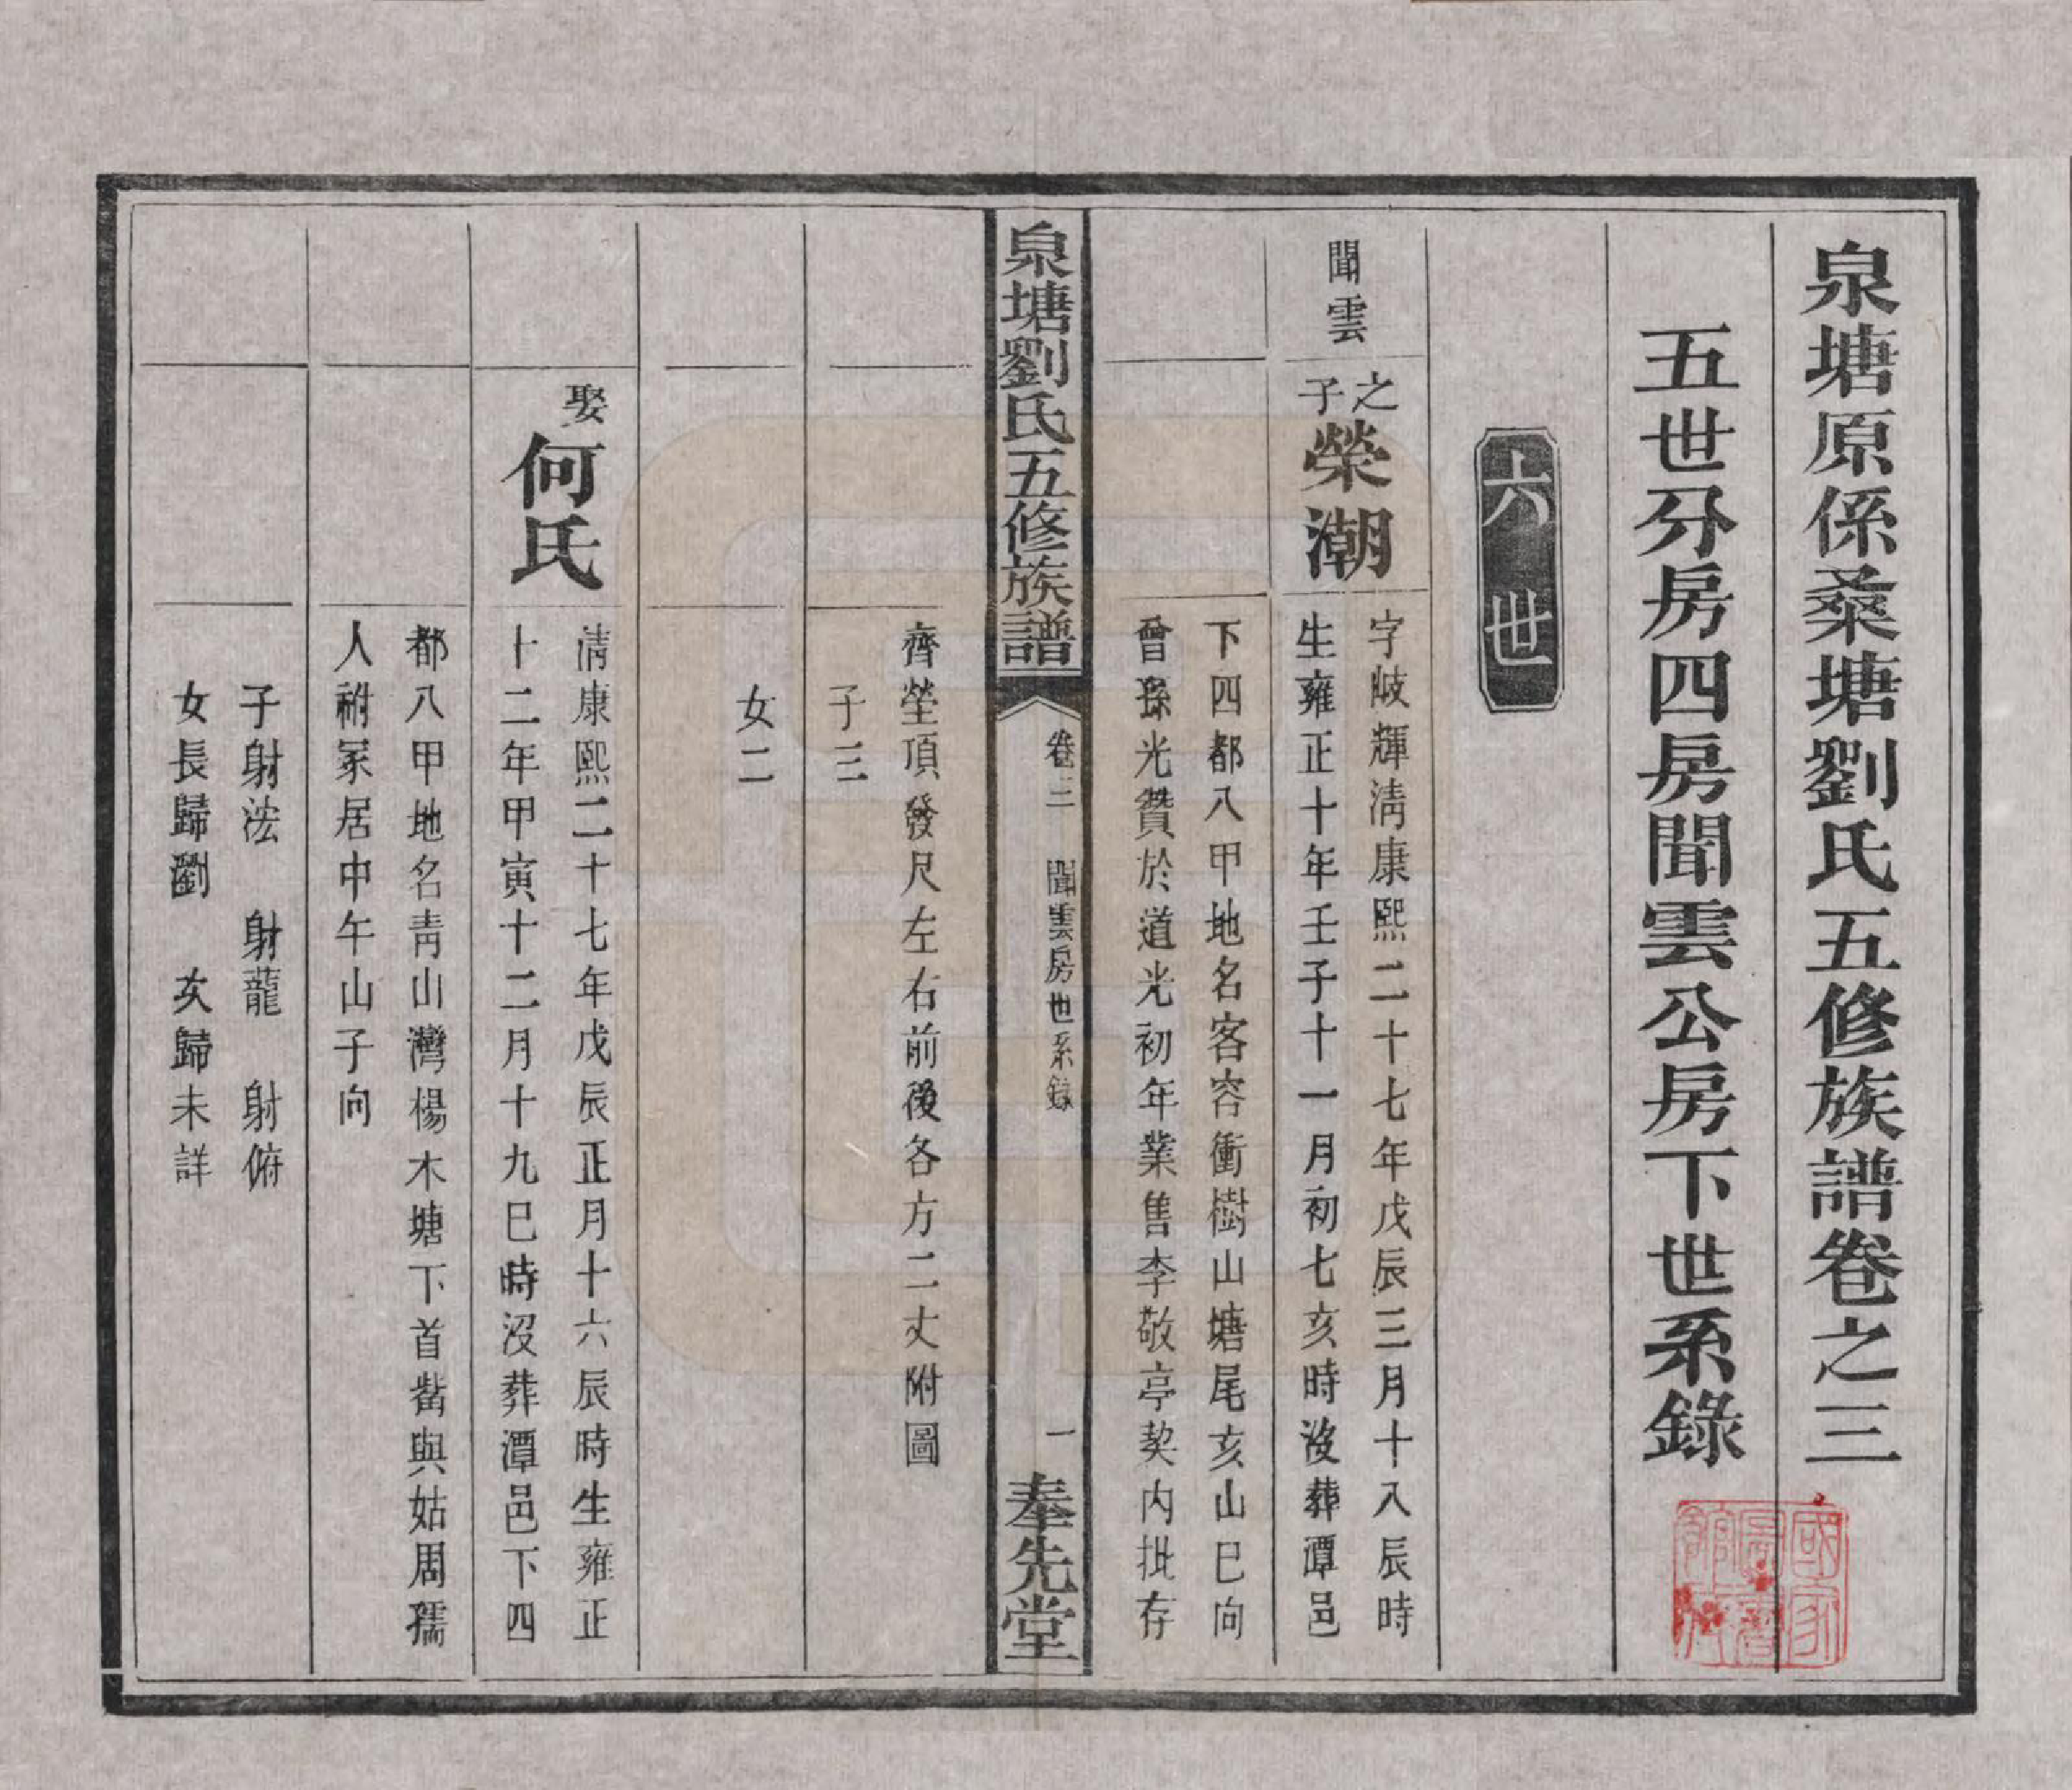 泉塘原係桑塘劉氏五修族譜卷之三
五世分房四房聞雲公房下世系錄
六世
聞雲
之子
榮潮
字岐輝清康熙二十七年戊辰三月十八辰時
生雍正十年壬子十一月初七亥時沒葬潭邑
下四都八甲地名客容衝樹山塘尾亥山巳向
曾孫光贊於道光初年業售李敬亭契內批存
泉塘劉氏五修族譜
卷三
聞雲房世系錄
一
奉先堂
齊塋頂發尺左右前後各方二丈附圖
子三
女二
娶
何氏
清康熙二十七年戊辰正月十六辰時生雍正
十二年甲寅十二月十九巳時沒葬潭邑下四
都八甲地名青山灣楊木塘下首嵤與姑周孺
人祔冢居中午山子向
子射法 射龍 射俯
女長歸劉 次歸未詳
國家圖書館藏